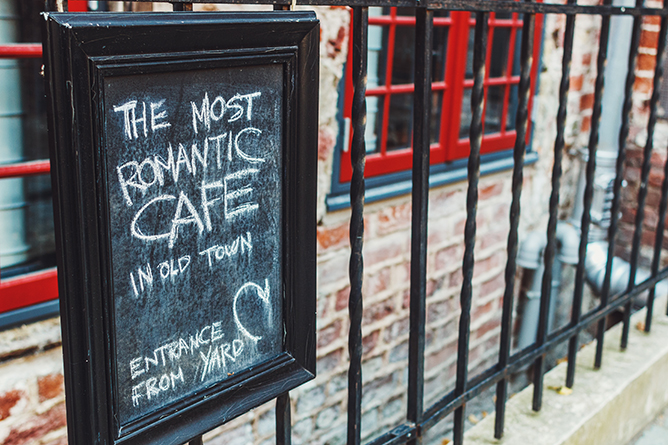 THE MOST
ROMANTIC
CAFE
IN OLD TOWN
ENTRANCE
FROM YARD